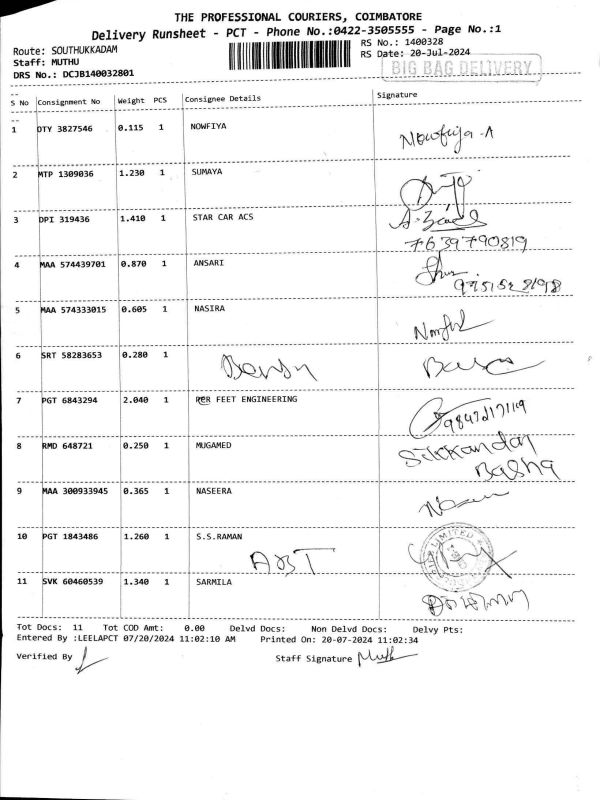 THE PROFESSIONAL COURIERS, COIMBATORE
Delivery Runsheet - PCT - Phone No.:0422-3505555 - Page No.:1
Route: SOUTHUKKADAM
RS No.: 1400328
Staff: MUTHU
RS Date: 20-Jul-2024
DRS No.: DCJB140032801
BIG BAG DELIVERY
S No Consignment No Weight PCS Consignee Details Signature
1 DTY 3827546 0.115 1 NOWFIYA Nowfiya-A
2 MTP 1309036 1.230 1 SUMAYA
3 DPI 319436 1.410 1 STAR CAR ACS
7639790819
4 MAA 574439701 0.870 1 ANSARI
5 MAA 574333015 0.605 1 NASIRA
6 SRT 58283653 0.280 1
7 PGT 6843294 2.040 1 PER FEET ENGINEERING
8 RMD 648721 0.250 1 MUGAMED Sikkandar
Basha
9 MAA 300933945 0.365 1 NASEERA
10 PGT 1843486 1.260 1 S.S.RAMAN
LIMITED
11 SVK 60460539 1.340 1 SARMILA
Tot Docs: 11 Tot COD Amt: 0.00 Delvd Docs: Non Delvd Docs: Delvy Pts:
Entered By :LEELAPCT 07/20/2024 11:02:10 AM Printed On: 20-07-2024 11:02:34
Verified By
Staff Signature Muth